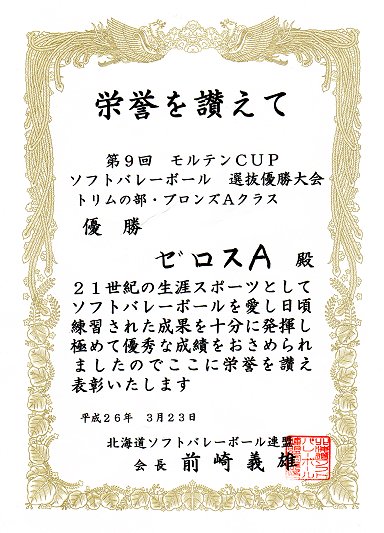 栄誉を讃えて
第9回 モルテンCUP
ソフトバレーボール 選抜優勝大会
トリムの部・ブロンズAクラス
優勝
ゼロスA 殿
21世紀の生涯スポーツとして
ソフトバレーボールを愛し日頃
練習された成果を十分に発揮し
極めて優秀な成績をおさめられ
ましたのでここに栄誉を讃え
表彰いたします
平成26年 3月23日
北海道ソフトバレーボール連盟
会長 前崎義雄